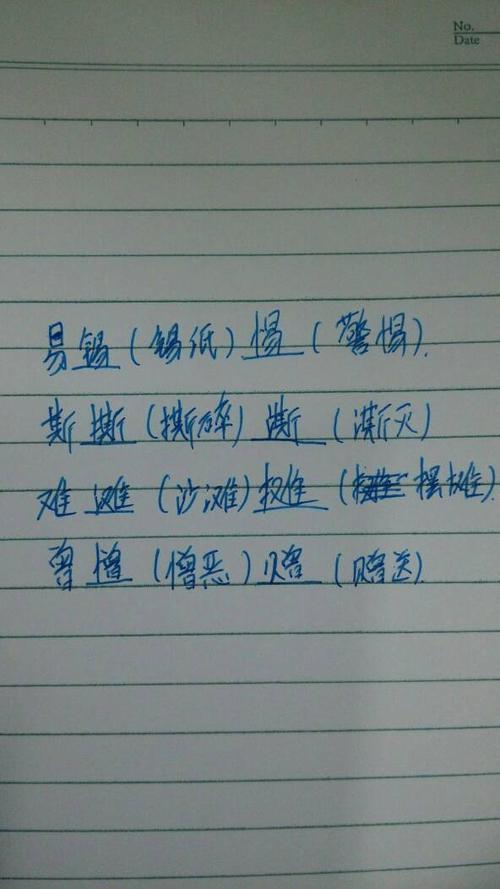 No.
Date
易 锡 (锡纸) 惕 (警惕).
斯 撕 (撕碎) 澌 (澌灭)
难 滩 (沙滩) 摊 (摆摊)
曾 憎 (憎恶) 赠 (赠送).